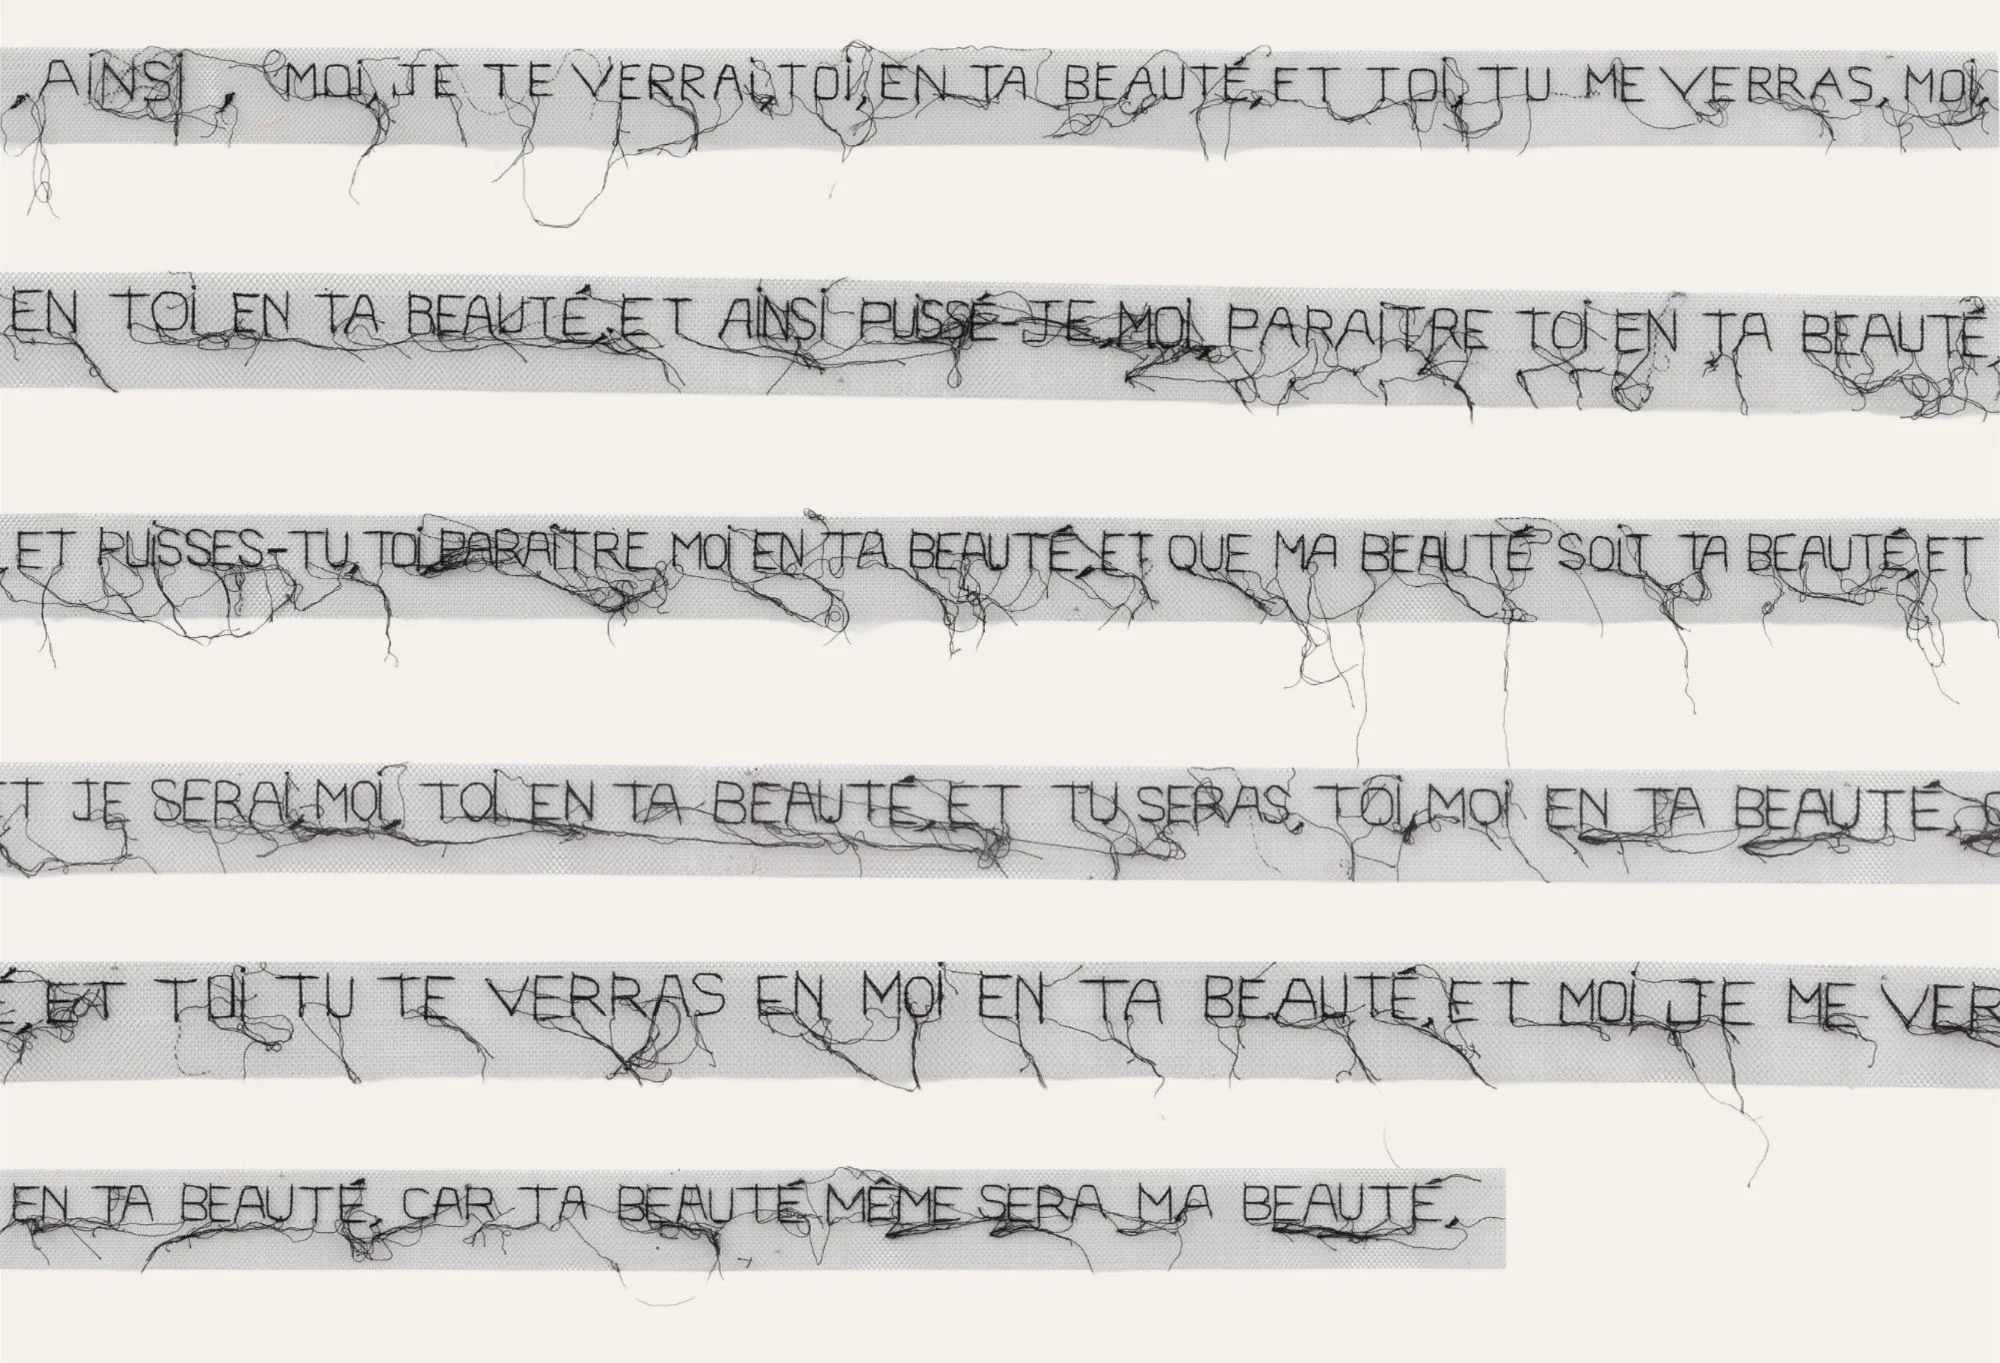 AINSI, MOI, JE TE VERRAI, TOI, EN TA BEAUTÉ, ET TOI, TU ME VERRAS, MOI,
EN TOI, EN TA BEAUTÉ, ET AINSI PUSSÉ-JE, MOI, PARAÎTRE TOI EN TA BEAUTÉ,
ET PUISSES-TU, TOI, PARAÎTRE MOI EN TA BEAUTÉ, ET QUE MA BEAUTÉ SOIT TA BEAUTÉ, ET
JE SERAI, MOI, TOI, EN TA BEAUTÉ, ET TU SERAS, TOI, MOI EN TA BEAUTÉ
ET TOI TU TE VERRAS EN MOI EN TA BEAUTÉ, ET MOI, JE ME VER
EN TA BEAUTÉ, CAR TA BEAUTÉ MÊME SERA MA BEAUTÉ.